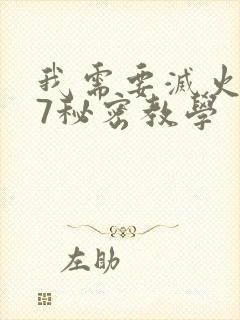 我需要滅火
7秘密教學
左助